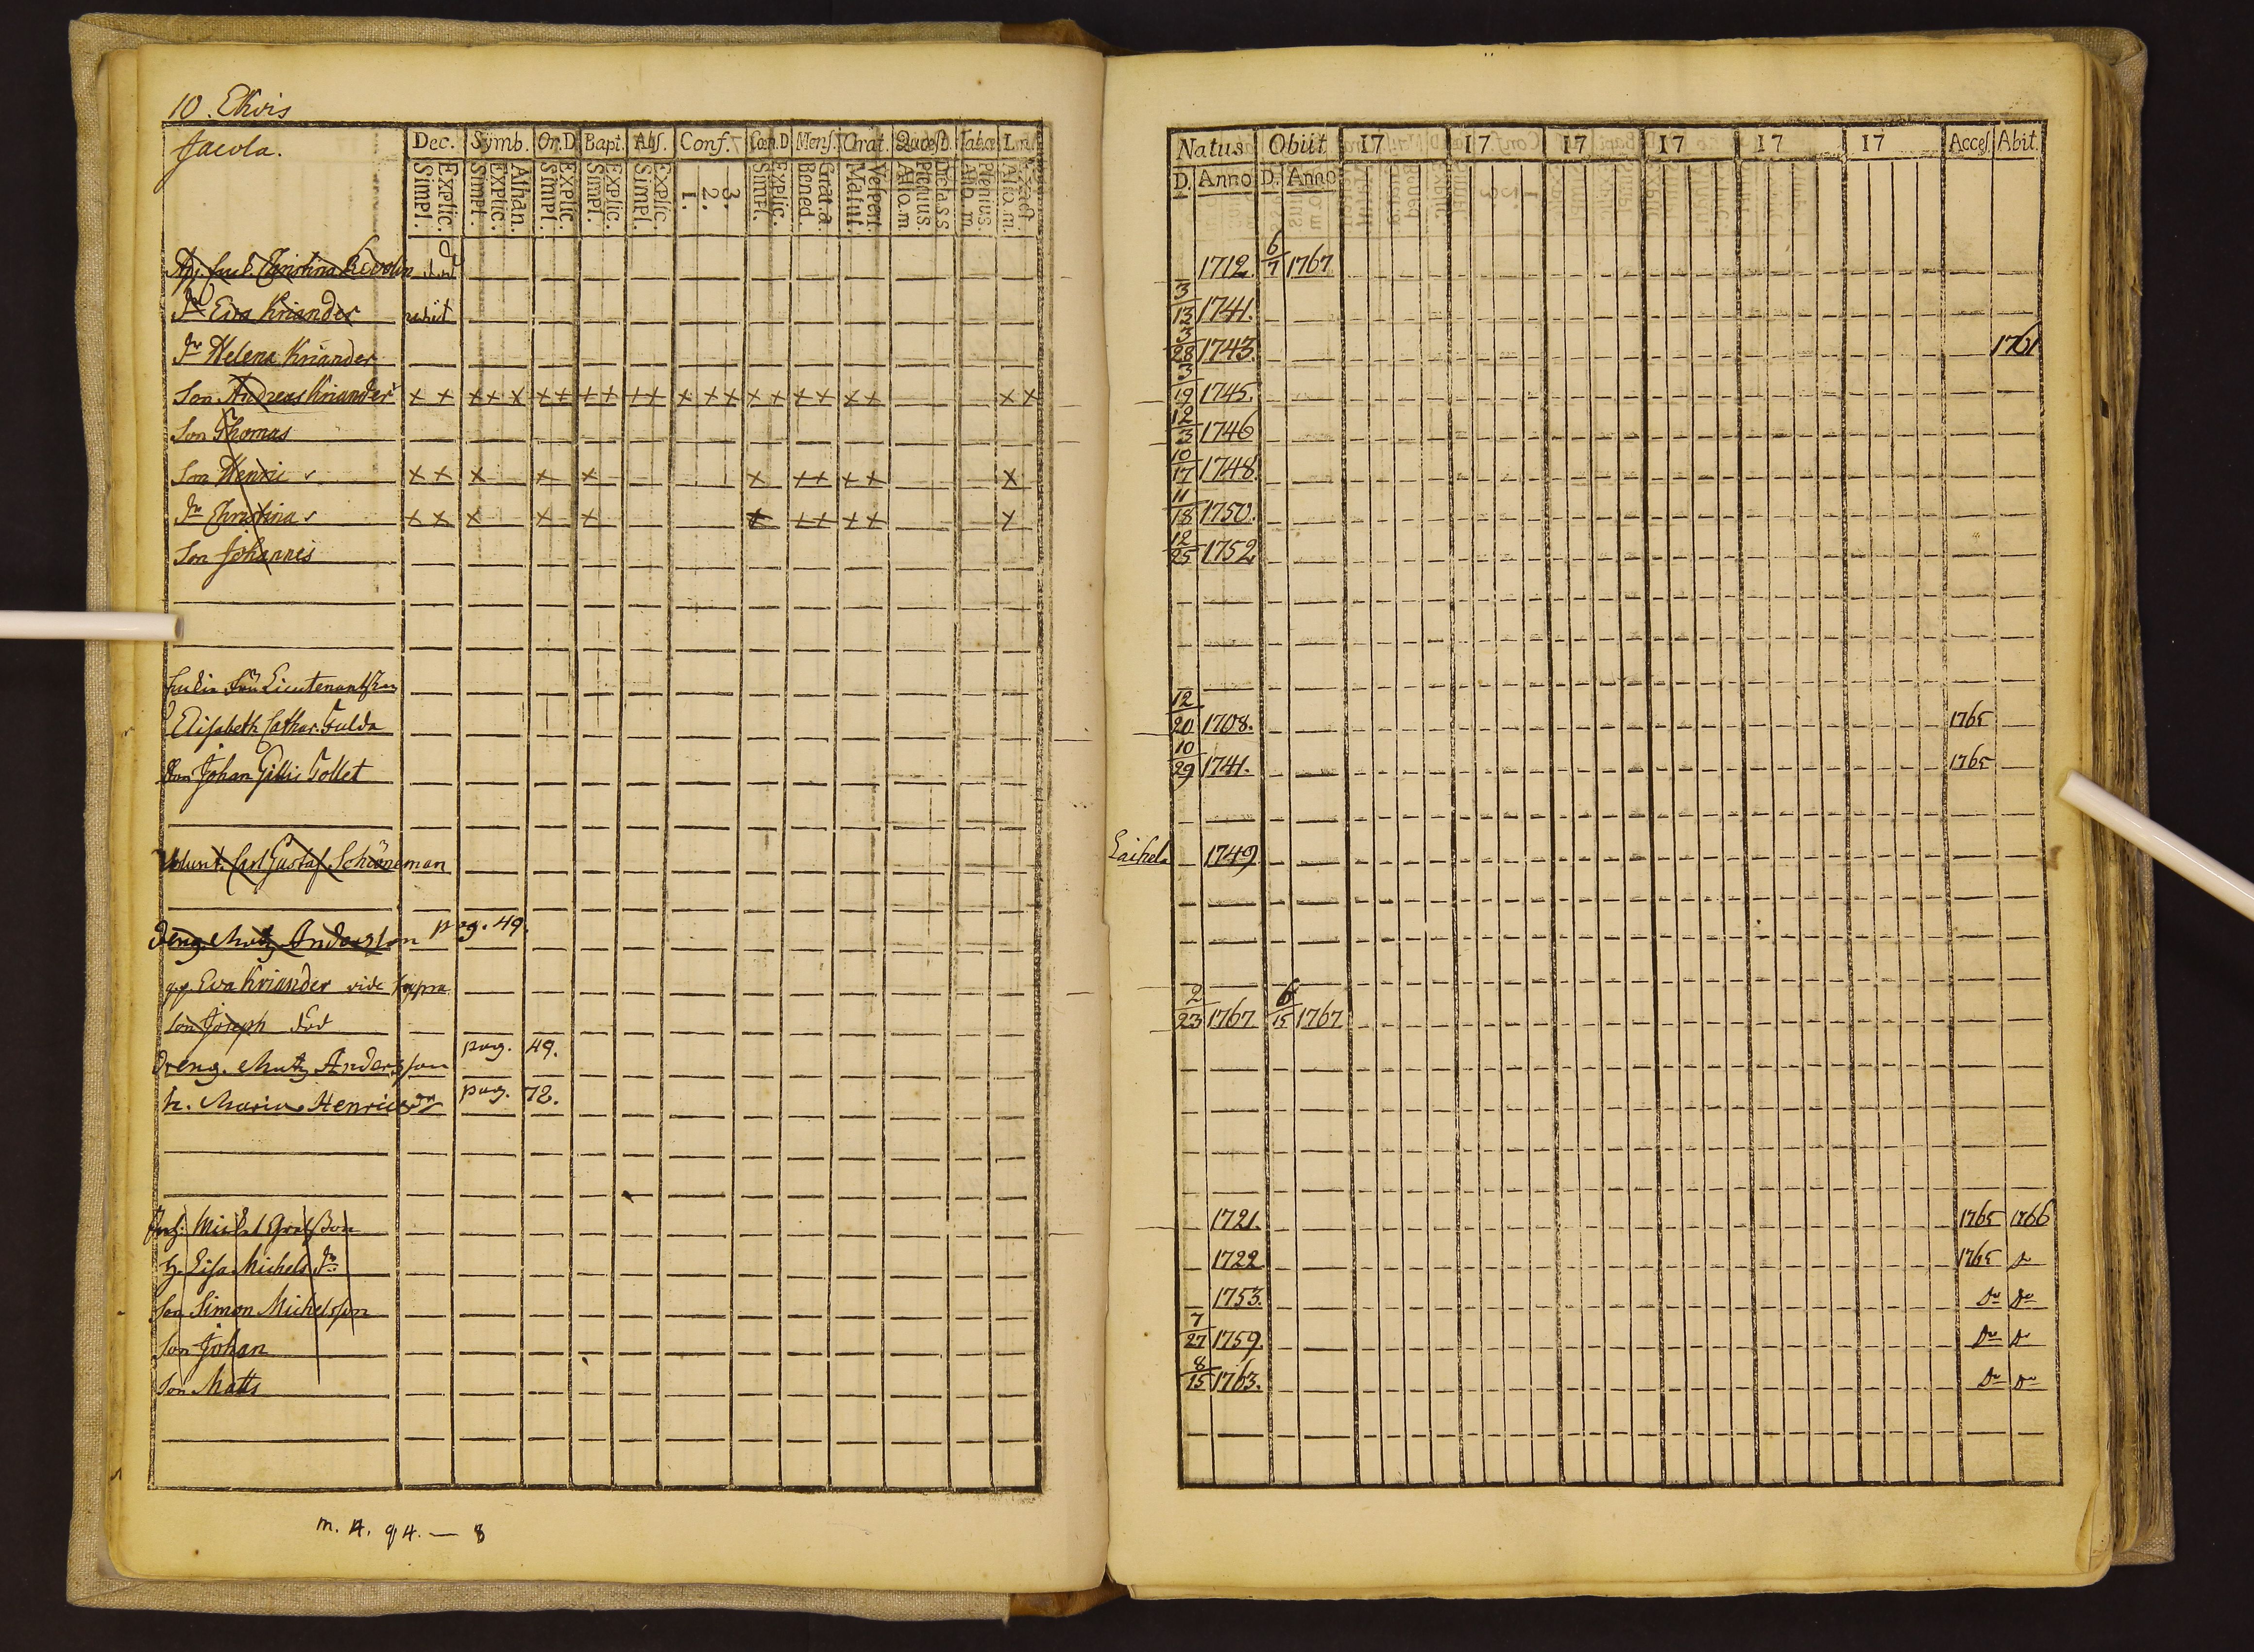 10. Ekvis
Jacola.
Dec. Symb. Or.D. Bapt. Abs. Conf. Cœn.D Mens. Orat. Quæst.D. Tabæ L.n.
Simpl. Explic. Simpl. Explic. Athan. Simpl. Explic. Simpl. Explic. Simpl. Explic. 1. 2. 3. Simpl. Explic. Bened. Grat.a. Matut. Vespert. Aliq.m. Plenius. Dicta S.S. Aliq.m Plenius. Aliq.m. Exact.
Natus Obiit 17 17 17 17 17 17 Acces. Abit.
D. Anno D. Anno
Christina 1712. 6/7 1767
Dr Eva Kriander nubit 3/13 1741.
Dr Helena Kriander 3/28 1743. 1761
Son Andreas Kriander x x x x x x x x x x x x x x x x x x x x x x 3/19 1745.
Son Thomas 12/3 1746
Son Henric x x x x x x x x x x x 10/17 1748.
Dr Christina x x x x x x x x x x x 11/18 1750.
Son Johannes 12/25 1752
Lieutenantskan
Elisabeth Cathar. Fulda 12/20 1708. 1765
Johan Gillis Tollet 10/29 1741. 1765
Volunt. Carl Gustaf Schöneman Laihela 1749
Dreng. Matz Andersson pag. 49.
Eva Kriander vide supra
Son Joseph död 2/23 1767 6/15 1767
Dreng. Matz Andersson pag. 49.
h. Maria Henricsdr pag. 72.
Michel 1721. 1765 1766
h. Lisa Michels Dr 1722 1765 Do
Son Simon Michelsson 1753. Do Do
Son Johan 7/27 1759. Do Do
Son Matts 8/15 1763. Do Do
m. A. q4. — 8